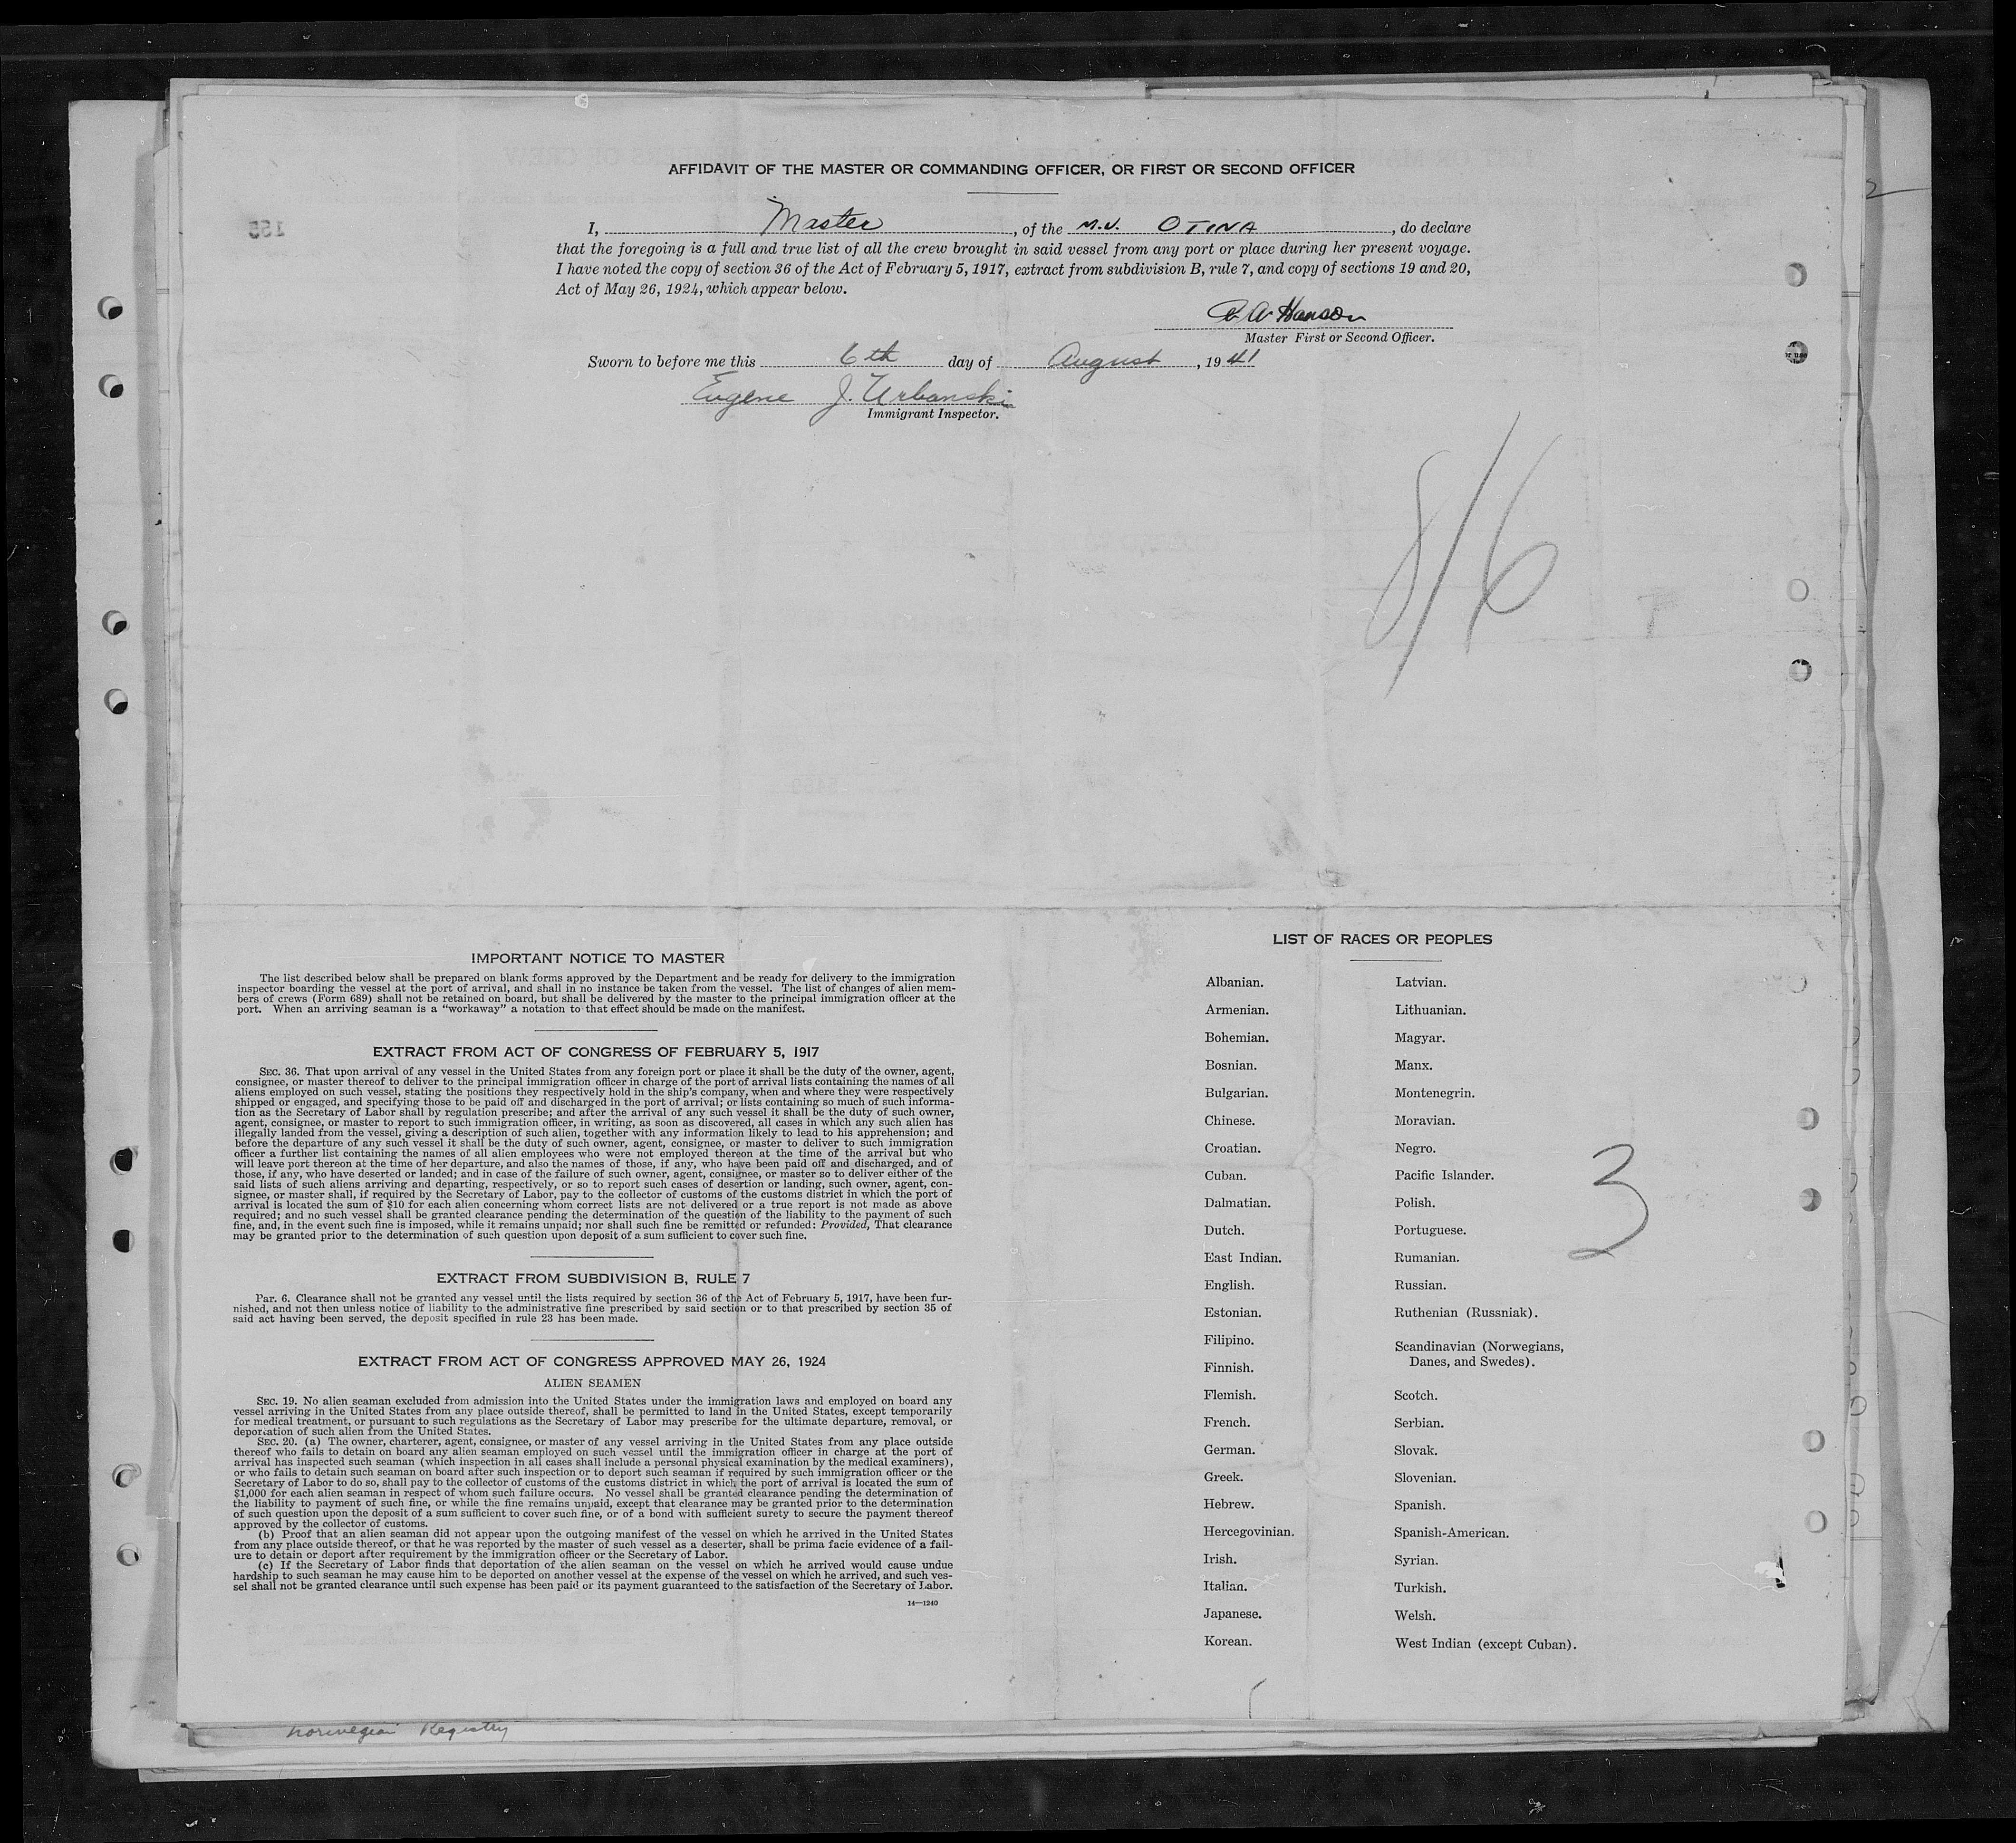 AFFIDAVIT OF THE MASTER OR COMMANDING OFFICER, OR FIRST OR SECOND OFFICER
I, Master, of the M.V. OTINA, do declare
that the foregoing is a full and true list of all the crew brought in said vessel from any port or place during her present voyage.
I have noted the copy of section 36 of the Act of February 5, 1917, extract from subdivision B, rule 7, and copy of sections 19 and 20,
Act of May 26, 1924, which appear below.
Hanson
Master First or Second Officer.
Sworn to before me this 6th day of August, 1941
Eugene J. Urbanski
Immigrant Inspector.
8/6
IMPORTANT NOTICE TO MASTER
The list described below shall be prepared on blank forms approved by the Department and be ready for delivery to the immigration
inspector boarding the vessel at the port of arrival, and shall in no instance be taken from the vessel. The list of changes of alien mem-
bers of crews (Form 689) shall not be retained on board, but shall be delivered by the master to the principal immigration officer at the
port. When an arriving seaman is a "workaway" a notation to that effect should be made on the manifest.
EXTRACT FROM ACT OF CONGRESS OF FEBRUARY 5, 1917
SEC. 36. That upon arrival of any vessel in the United States from any foreign port or place it shall be the duty of the owner, agent,
consignee, or master thereof to deliver to the principal immigration officer in charge of the port of arrival lists containing the names of all
aliens employed on such vessel, stating the positions they respectively hold in the ship's company, when and where they were respectively
shipped or engaged, and specifying those to be paid off and discharged in the port of arrival; or lists containing so much of such informa-
tion as the Secretary of Labor shall by regulation prescribe; and after the arrival of any such vessel it shall be the duty of such owner,
agent, consignee, or master to report to such immigration officer, in writing, as soon as discovered, all cases in which any such alien has
illegally landed from the vessel, giving a description of such alien, together with any information likely to lead to his apprehension; and
before the departure of any such vessel it shall be the duty of such owner, agent, consignee, or master to deliver to such immigration
officer a further list containing the names of all alien employees who were not employed thereon at the time of the arrival but who
will leave port thereon at the time of her departure, and also the names of those, if any, who have been paid off and discharged, and of
those, if any, who have deserted or landed; and in case of the failure of such owner, agent, consignee, or master so to deliver either of the
said lists of such aliens arriving and departing, respectively, or so to report such cases of desertion or landing, such owner, agent, con-
signee, or master shall, if required by the Secretary of Labor, pay to the collector of customs of the customs district in which the port of
arrival is located the sum of $10 for each alien concerning whom correct lists are not delivered or a true report is not made as above
required; and no such vessel shall be granted clearance pending the determination of the question of the liability to the payment of such
fine, and, in the event such fine is imposed, while it remains unpaid; nor shall such fine be remitted or refunded: Provided, That clearance
may be granted prior to the determination of such question upon deposit of a sum sufficient to cover such fine.
EXTRACT FROM SUBDIVISION B, RULE 7
PAR. 6. Clearance shall not be granted any vessel until the lists required by section 36 of the Act of February 5, 1917, have been fur-
nished, and not then unless notice of liability to the administrative fine prescribed by said section or to that prescribed by section 35 of
said act having been served, the deposit specified in rule 23 has been made.
EXTRACT FROM ACT OF CONGRESS APPROVED MAY 26, 1924
ALIEN SEAMEN
SEC. 19. No alien seaman excluded from admission into the United States under the immigration laws and employed on board any
vessel arriving in the United States from any place outside thereof, shall be permitted to land in the United States, except temporarily
for medical treatment, or pursuant to such regulations as the Secretary of Labor may prescribe for the ultimate departure, removal, or
deportation of such alien from the United States.
SEC. 20. (a) The owner, charterer, agent, consignee, or master of any vessel arriving in the United States from any place outside
thereof who fails to detain on board any alien seaman employed on such vessel until the immigration officer in charge at the port of
arrival has inspected such seaman (which inspection in all cases shall include a personal physical examination by the medical examiners),
or who fails to detain such seaman on board after such inspection or to deport such seaman if required by such immigration officer or the
Secretary of Labor to do so, shall pay to the collector of customs of the customs district in which the port of arrival is located the sum of
$1,000 for each alien seaman in respect of whom such failure occurs. No vessel shall be granted clearance pending the determination of
the liability to payment of such fine, or while the fine remains unpaid, except that clearance may be granted prior to the determination
of such question upon the deposit of a sum sufficient to cover such fine, or of a bond with sufficient surety to secure the payment thereof
approved by the collector of customs.
(b) Proof that an alien seaman did not appear upon the outgoing manifest of the vessel on which he arrived in the United States
from any place outside thereof, or that he was reported by the master of such vessel as a deserter, shall be prima facie evidence of a fail-
ure to detain or deport after requirement by the immigration officer or the Secretary of Labor.
(c) If the Secretary of Labor finds that deportation of the alien seaman on the vessel on which he arrived would cause undue
hardship to such seaman he may cause him to be deported on another vessel at the expense of the vessel on which he arrived, and such ves-
sel shall not be granted clearance until such expense has been paid or its payment guaranteed to the satisfaction of the Secretary of Labor.
14—1240
LIST OF RACES OR PEOPLES
Albanian.
Armenian.
Bohemian.
Bosnian.
Bulgarian.
Chinese.
Croatian.
Cuban.
Dalmatian.
Dutch.
East Indian.
English.
Estonian.
Filipino.
Finnish.
Flemish.
French.
German.
Greek.
Hebrew.
Hercegovinian.
Irish.
Italian.
Japanese.
Korean.
Latvian.
Lithuanian.
Magyar.
Manx.
Montenegrin.
Moravian.
Negro.
Pacific Islander.
Polish.
Portuguese.
Rumanian.
Russian.
Ruthenian (Russniak).
Scandinavian (Norwegians,
Danes, and Swedes).
Scotch.
Serbian.
Slovak.
Slovenian.
Spanish.
Spanish-American.
Syrian.
Turkish.
Welsh.
West Indian (except Cuban).
3
Norwegian Registry